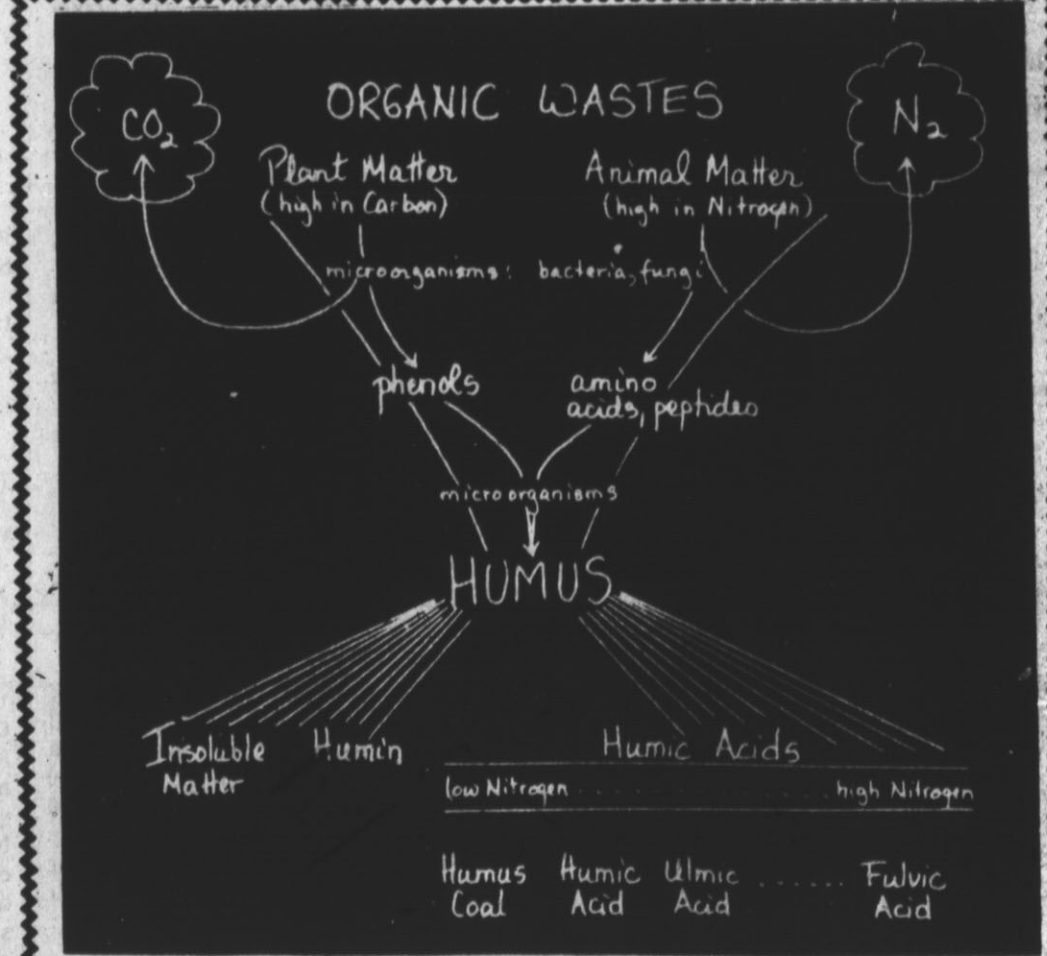 CO2
ORGANIC WASTES
N2
Plant Matter
(high in Carbon)
Animal Matter
(high in Nitrogen)
microorganisms: bacteria, fungi
phenols
amino
acids, peptides
microorganisms
HUMUS
Insoluble
Matter
Humin
Humic Acids
low Nitrogen .................... high Nitrogen
Humus
Coal
Humic
Acid
Ulmic
Acid
......
Fulvic
Acid